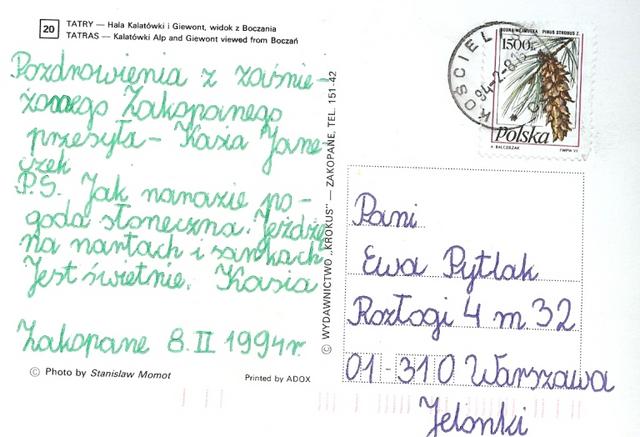 20
TATRY — Hala Kalatówki i Giewont, widok z Boczania
TATRAS — Kalatówki Alp and Giewont viewed from Boczań
Pozdrowienia z zaśnie-
żonego Zakopanego
przesyła - Kasia Jane-
czek
P.S. Jak narazie po-
goda słoneczna. Jeżdżę
na nartach i sankach
Jest świetnie. Kasia
Zakopane 8.II 1994r.
© Photo by Stanisław Momot
Printed by ADOX
© WYDAWNICTWO „KROKUS" — ZAKOPANE, TEL. 151-42
KOŚCIEL
94-2-8
1500 zł
PINUS STROBUS
Polska
Pani
Ewa Pytlak
Rozłogi 4 m 32
01-310 Warszawa
Jelonki